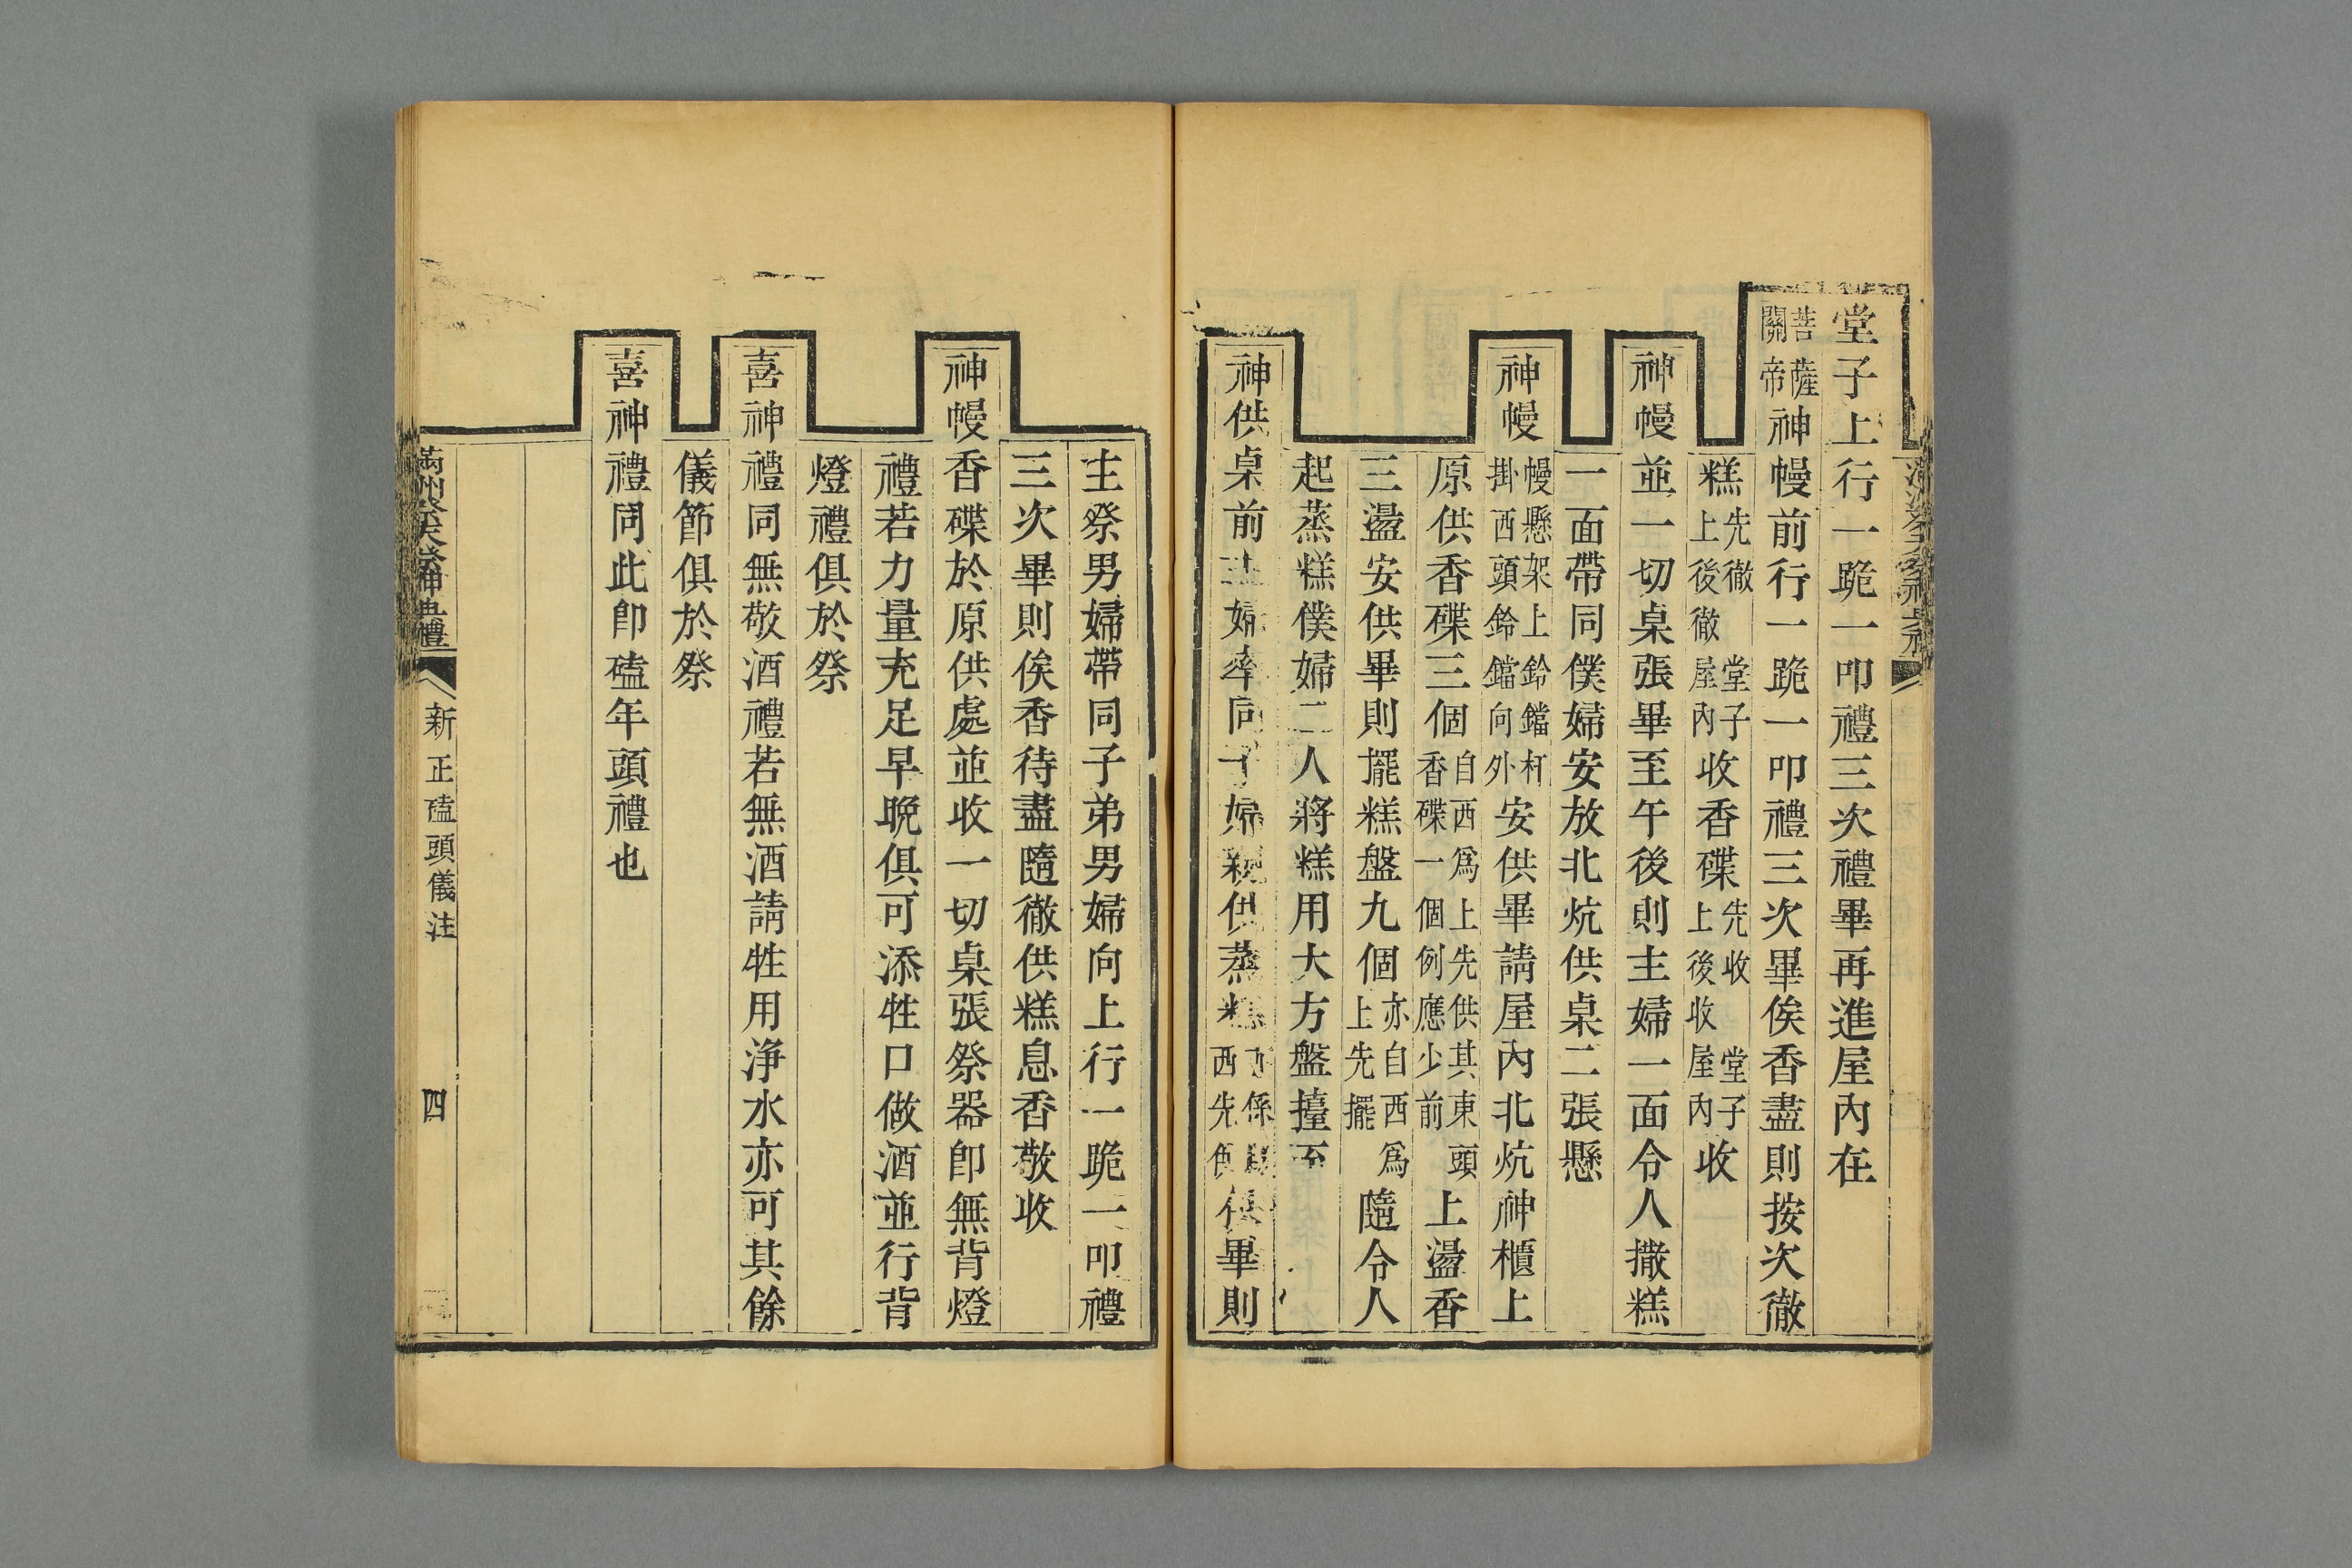 堂子上行一跪一叩禮三次禮畢再進屋內在
菩薩關帝神幔前行一跪一叩禮三次畢俟香盡則按次徹
糕先徹堂子上後徹屋內收香碟先收堂子上後收屋內收
神幔並一切桌張畢至午後則主婦一面令人撒糕
一面帶同僕婦安放北炕供桌二張懸
神幔幔懸架上鈴鐺杆掛西頭鈴鐺向外安供畢請屋內北炕神櫃上
原供香碟三個自西為上先供其東頭香碟一個例應少前上盪香
三盪安供畢則擺糕盤九個亦自西為上先擺隨令人
起蒸糕僕婦二人將糕用大方盤擡至
神供桌前主婦率同子婦親供蒸糕西先供畢則
主祭男婦帶同子弟男婦向上行一跪一叩禮
三次畢則俟香待盡隨徹供糕息香敬收
神幔香碟於原供處並收一切桌張祭器卽無背燈
禮若力量充足早晩俱可添牲口做酒並行背
燈禮俱於祭
喜神禮同無敬酒禮若無酒請牲用浄水亦可其餘
儀節俱於祭
喜神禮同此卽磕年頭禮也
滿洲祭天祭神典禮
新正磕頭儀注
四